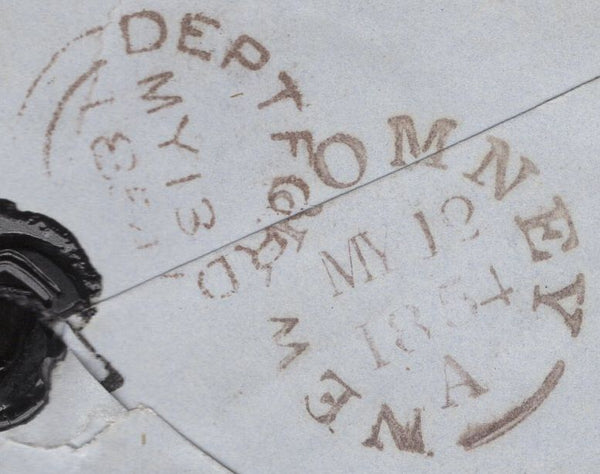 DEPTFORD
MY 13
NEW ROMNEY
MY 12
1854
A